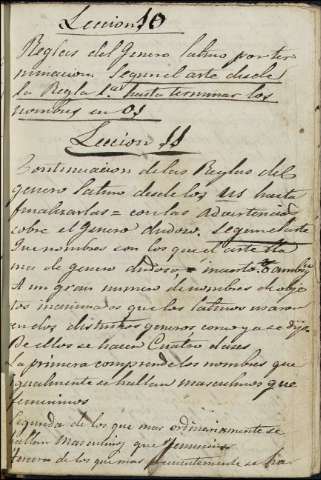 Leccion 10
Reglas del Genero latino por ter
minacion Segun el arte desde
la Regla 1ª hasta terminar los
nombres en os
Leccion 11
Continuacion de las Reglas del
genero latino desde los us hasta
finalizarlas = con las advertencias
sobre el Genero dudoso. Segun el arte
Que nombres con los que el arte lla
ma de genero dudoso
A un gran numero de nombres de obje
tos inanimados que los latinos usaron
en dos distintos generos como ya se dijo
De ellos se hacen Cuatro clases
la primera comprende los nombres que
igualmente se hallan masculinos que
femeninos
Segunda de los que mas ordinariamente se
hallan Masculinos que femeninos
tercera de los que mas frecuentemente se ha